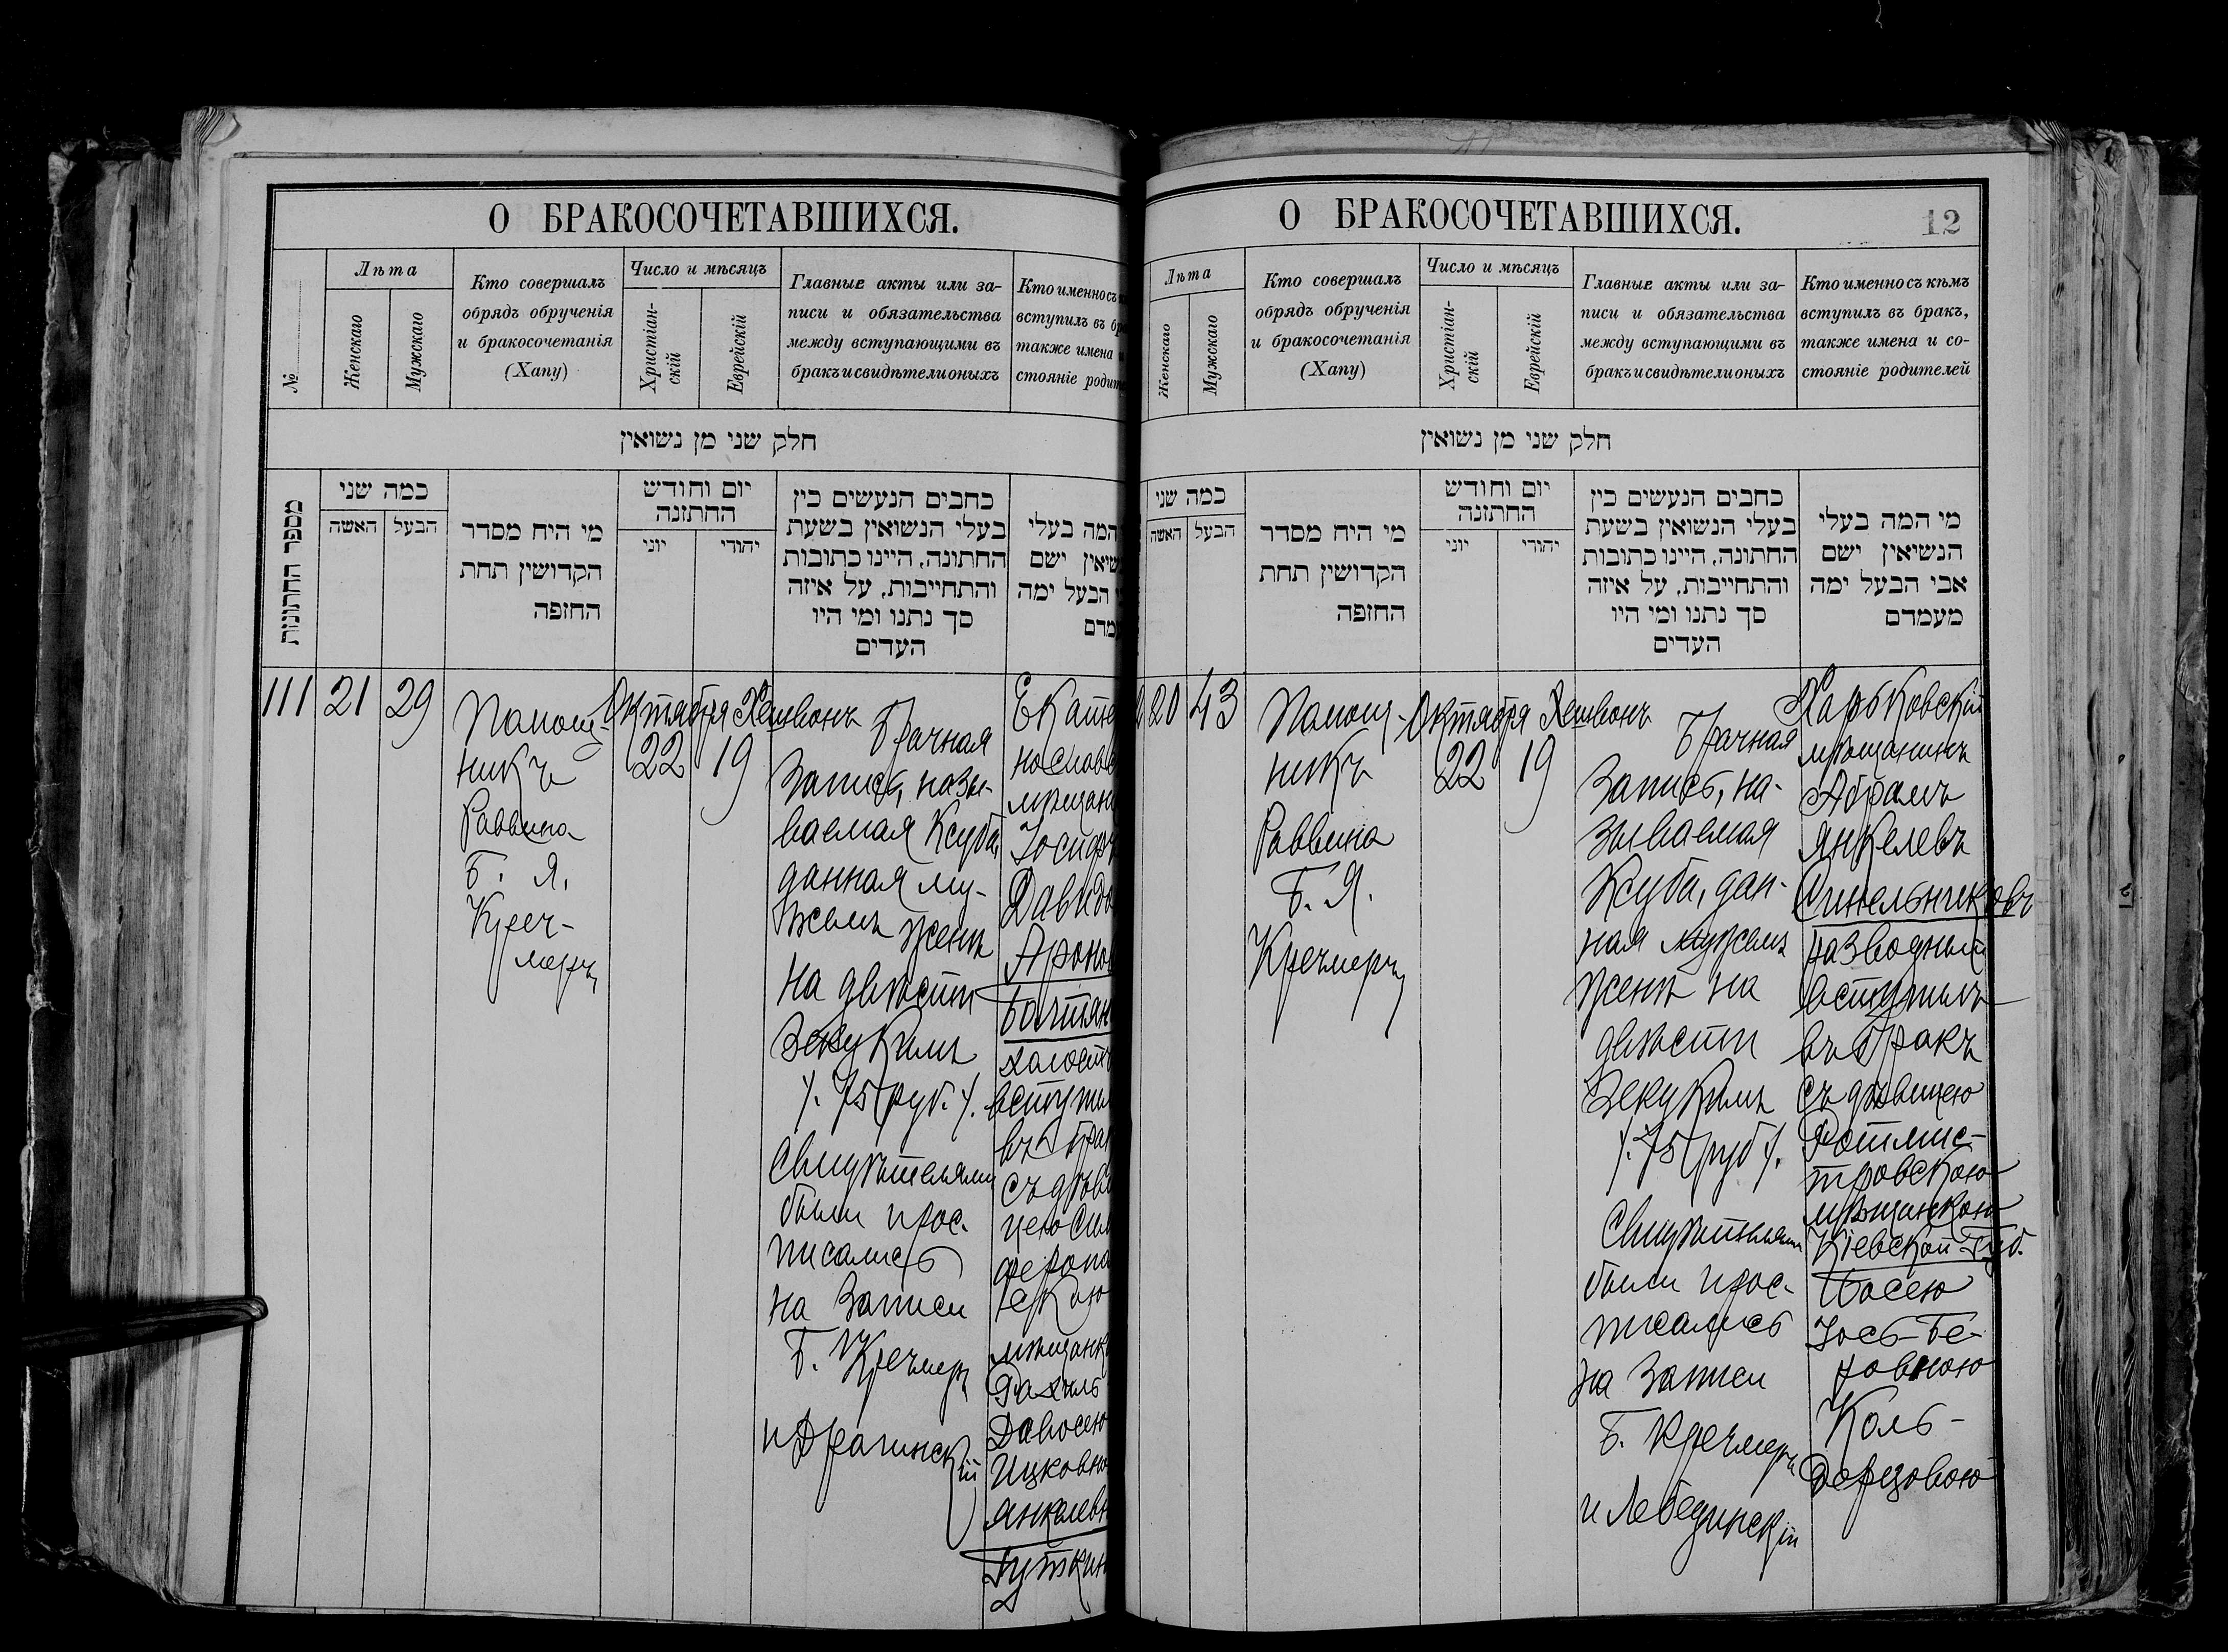 О БРАКОСОЧЕТАВШИХСЯ.
№
Лѣта
Женскаго
Мужскаго
Кто совершалъ
обрядъ обрученія
и бракосочетанія
(Хапу)
Число и мѣсяцъ
Христіан-
скій
Еврейскій
Главные акты или за-
писи и обязательства
между вступающими въ
бракъ и свидѣтели оныхъ
Кто именно съ
вступилъ въ
также имена
стояніе
חלק שני מן נשואין
מספר החתונות
כמה שני
האשה
הבעל
מי היח מסדר
הקדושין תחת
החופה
יום וחודש
החתונה
יוני
יהודי
כחבים הנעשים כין
בעלי הנשואין בשעת
החתונה, היינו כתובות
והתחייבות, על איזה
סך נתנו ומי היו
העדים
המה בעלי
ישם
הבעל ימה
111
21
29
Помощ-
никъ
Раввина
Б. Я.
Креч-
меръ
Октября
22
Хешвонъ
19
Брачная
запись, назы-
ваемая Ксуба,
данная му-
жемъ женѣ
на двѣсти
Зекукимъ
/. 75 руб /.
Свидѣтелями
были и рос-
писались
на записи
Б. Кречмеръ
и Драгинскій
Екате
нославс
мѣщан
Іосифъ
Давидо
Ароно
холост
вступил
въ бра
съ дѣви
цею Сим
феропо
скою
мѣщанк
Рахиль
Ицковн
Янкелевн
Гуткин
О БРАКОСОЧЕТАВШИХСЯ.
12
Лѣта
Женскаго
Мужскаго
Кто совершалъ
обрядъ обрученія
и бракосочетанія
(Хапу)
Число и мѣсяцъ
Христіан-
скій
Еврейскій
Главные акты или за-
писи и обязательства
между вступающими въ
бракъ и свидѣтели оныхъ
Кто именно съ кѣмъ
вступилъ въ бракъ,
также имена и со-
стояніе родителей
חלק שני מן נשואין
כמה שני
האשה
הבעל
מי היח מסדר
הקדושין תחת
החופה
יום וחודש
החתונה
יוני
יהודי
כחבים הנעשים כין
בעלי הנשואין בשעת
החתונה, היינו כתובות
והתחייבות, על איזה
סך נתנו ומי היו
העדים
מי המה בעלי
הנשיאין ישם
אבי הבעל ימה
מעמדם
20
43
Помощ-
никъ
Раввина
Б. Я.
Кречмеръ
Октября
22
Хешвонъ
19
Брачная
запись, на-
зываемая
Ксуба, дан-
ная мужемъ
женѣ на
двѣсти
Зекукимъ
/. 75 руб /.
Свидѣтелями
были и рос-
писались
на записи
Б. Кречмеръ
и Лебединскій
Харьковскій
мѣщанинъ
Абрамъ
Янкелевъ
Синельниковъ
разводный
вступилъ
въ бракъ
съ дѣвицею
Ротмис-
тровскою
мѣщанкою
Кіевской Губ.
Босею
Іось-Бе-
ровною
Коль-